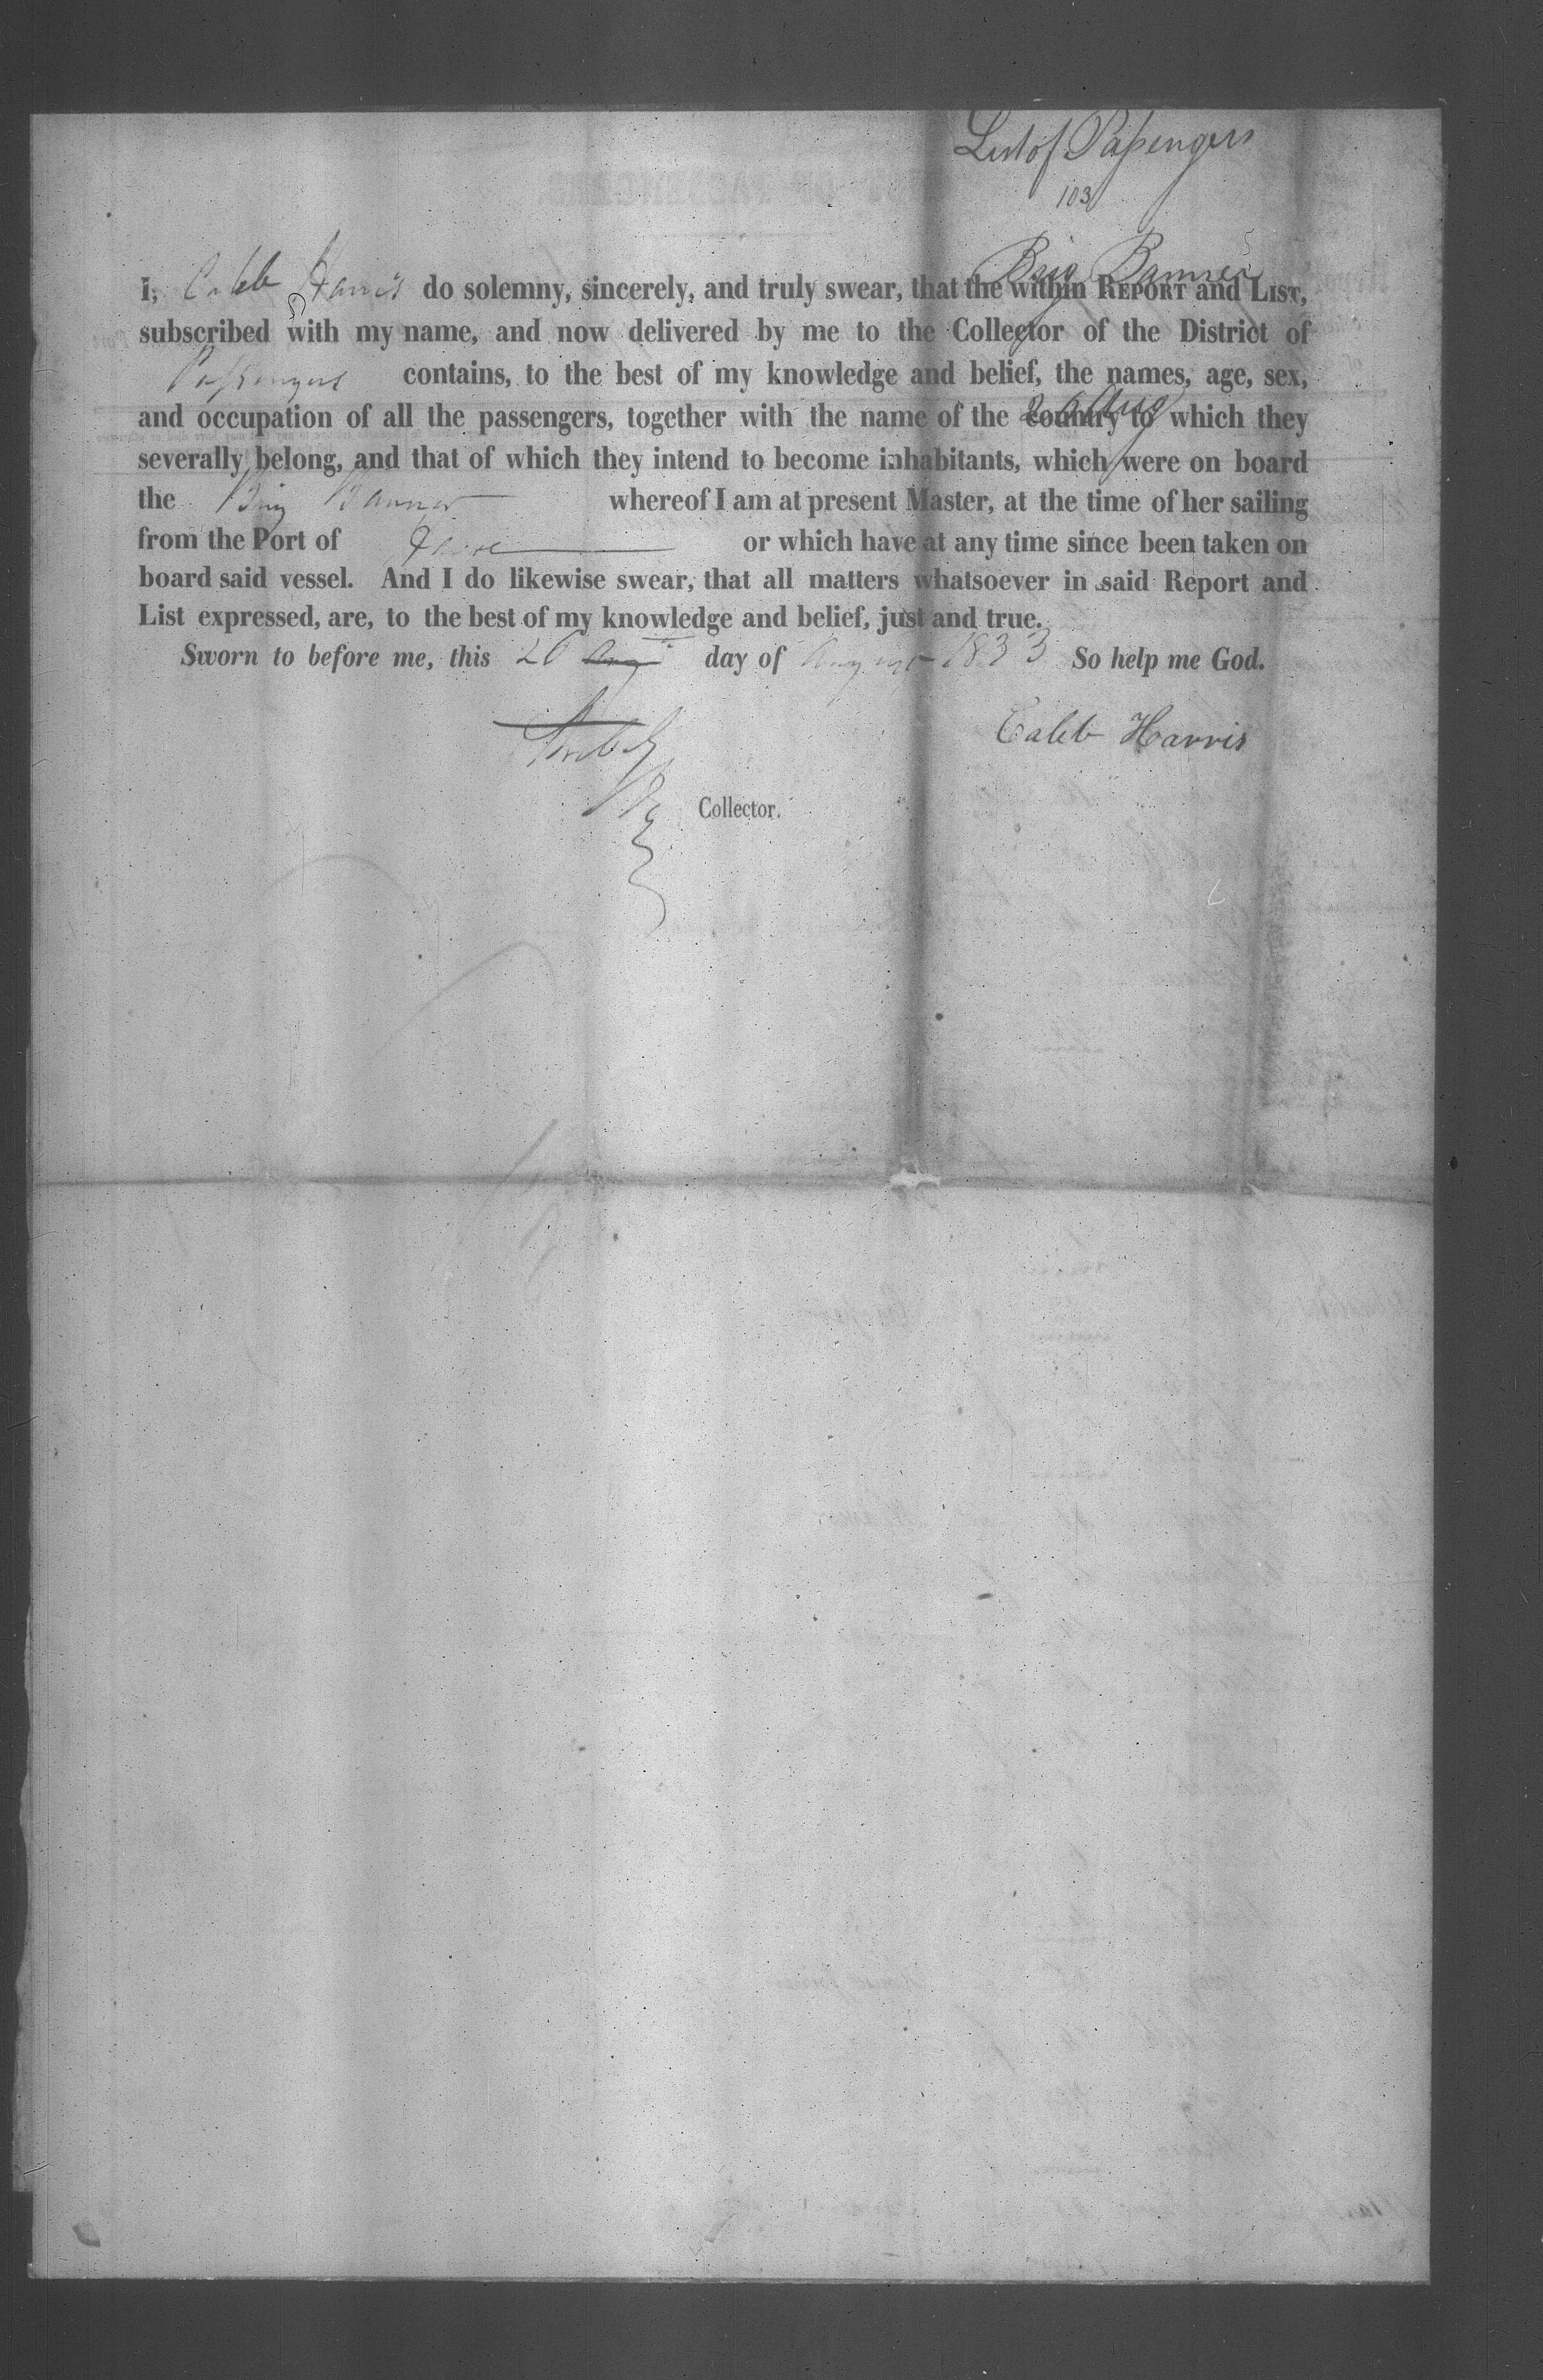 List of Passengers
103
Brig Banner
I, Caleb Harris do solemny, sincerely, and truly swear, that the within REPORT and LIST,
subscribed with my name, and now delivered by me to the Collector of the District of
Passengers contains, to the best of my knowledge and belief, the names, age, sex,
26 Aug
and occupation of all the passengers, together with the name of the country to which they
severally belong, and that of which they intend to become inhabitants, which were on board
the Brig Banner whereof I am at present Master, at the time of her sailing
from the Port of Havre or which have at any time since been taken on
board said vessel. And I do likewise swear, that all matters whatsoever in said Report and
List expressed, are, to the best of my knowledge and belief, just and true.
Sworn to before me, this 26 Aug day of August 1833 So help me God.
Caleb Harris
Collector.